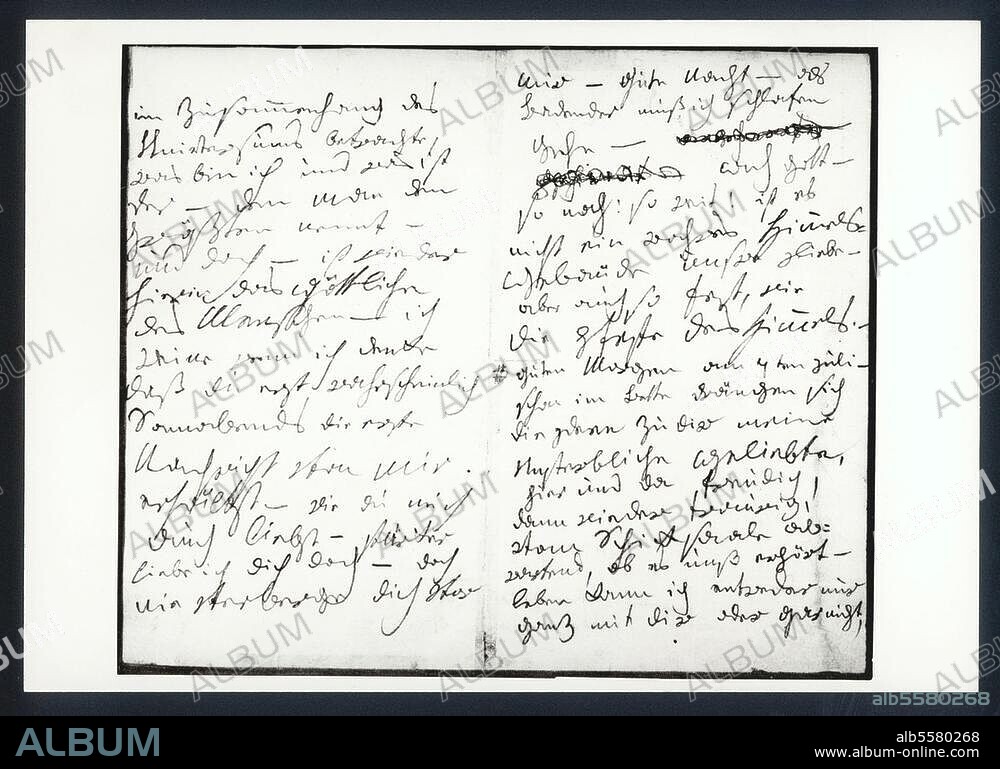 im Zusammenhang des
Universums betrachte,
was bin ich und was ist
der — den man den
größten nennt —
und doch — ist wieder
hierin das Göttliche
des Menschen — ich
weine wenn ich denke
daß du erst wahrscheinlich
Sonnabends die erste
Nachricht von mir
erhältst — wie du mich
auch liebst — stärker
liebe ich dich doch — doch
nie verberge dich vor
mir — gute Nacht — als
Badender muß ich schlafen
gehn —
ach gott —
so nah! so weit! ist es
nicht ein wahres Himmels=
Gebäude unsre Liebe —
aber auch so fest, wie
die Veste des Himmels. —
guten Morgen am 7ten Juli —
schon im Bette drängen sich
die Ideen zu dir meine
Unsterbliche Geliebte,
hier und da freudig,
dann wieder traurig,
vom Schicksaale ab=
wartend, ob es unß erhört —
leben kann ich entweder nur
ganz mit dir oder gar nicht,
alb5580268
ALBUM
alb5580268
www.album-online.com